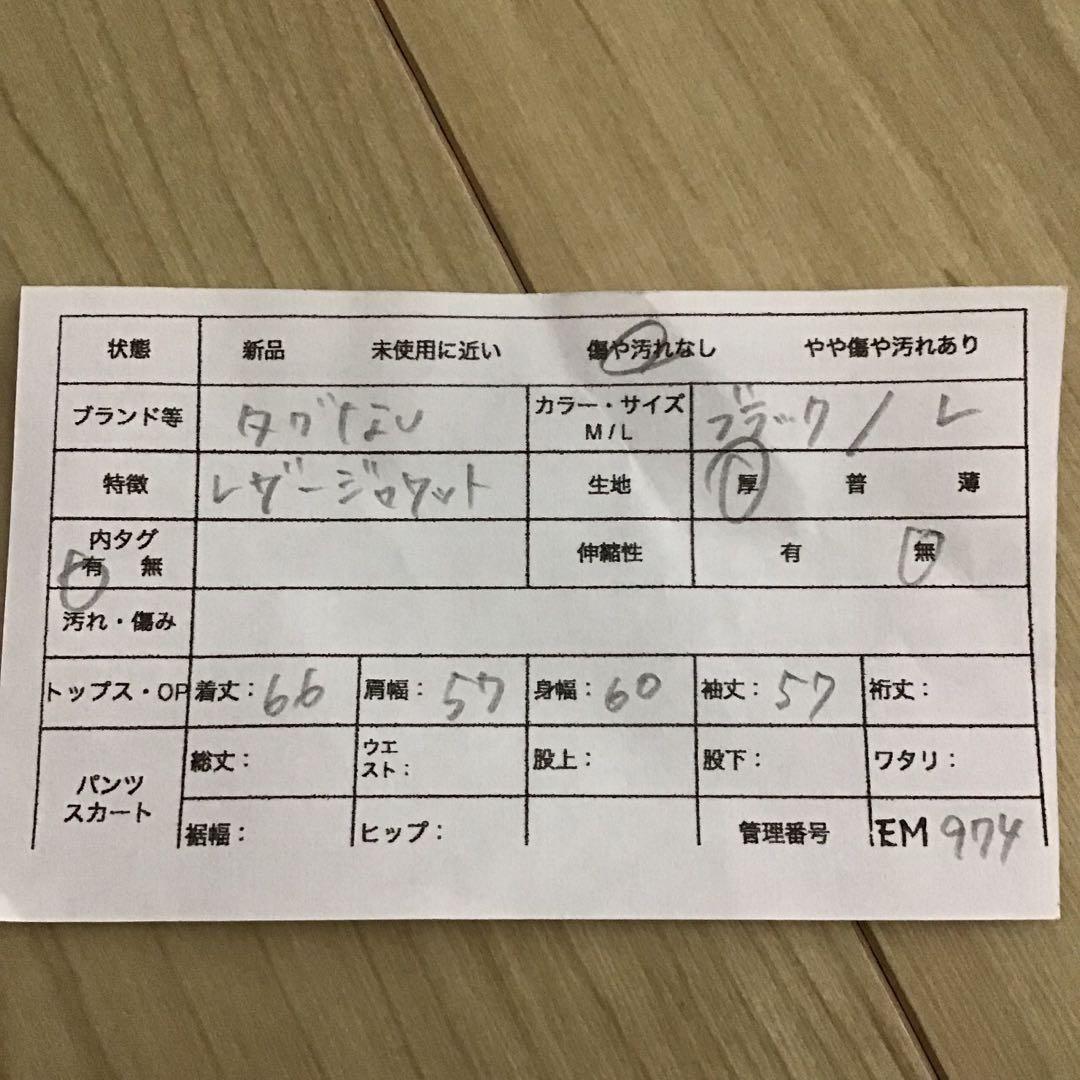 状態 新品 未使用に近い 傷や汚れなし やや傷や汚れあり
ブランド等 タグなし カラー・サイズ M/L ブラック/L
特徴 レザージャケット 生地 厚 普 薄
内タグ 有 無 伸縮性 有 無
汚れ・傷み
トップス・OP 着丈：66 肩幅：57 身幅：60 袖丈：57 裄丈：
パンツ スカート 総丈： ウエスト： 股上： 股下： ワタリ：
裾幅： ヒップ： 管理番号 EM 974